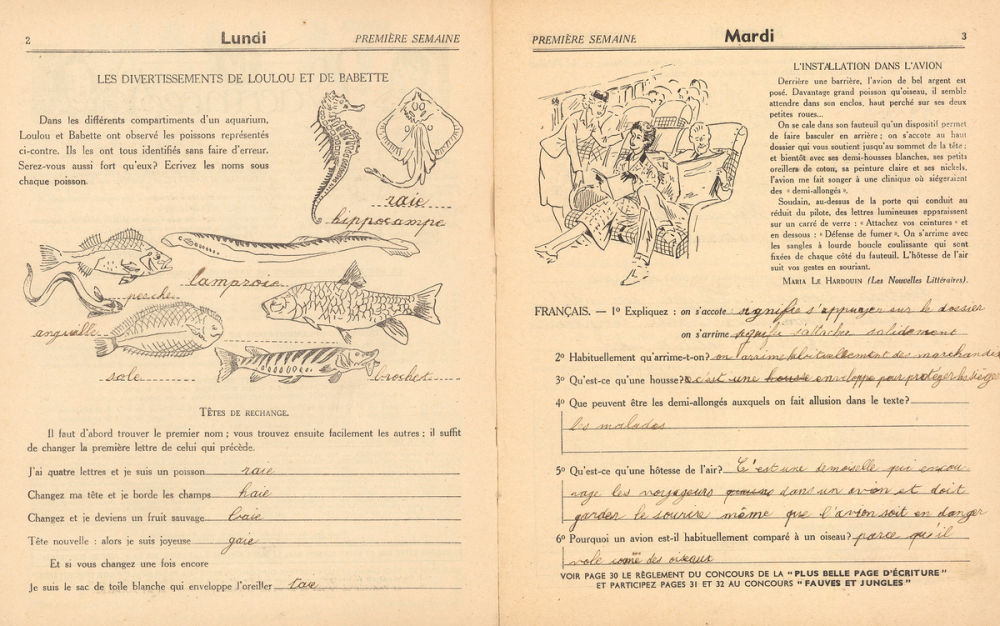 2
Lundi
PREMIÈRE SEMAINE
LES DIVERTISSEMENTS DE LOULOU ET DE BABETTE
Dans les différents compartiments d'un aquarium,
Loulou et Babette ont observé les poissons représentés
ci-contre. Ils les ont tous identifiés sans faire d'erreur.
Serez-vous aussi fort qu'eux? Ecrivez les noms sous
chaque poisson.
raie
hippocampe
lamproie
perche
anguille
sole
brochet
TÊTES DE RECHANGE.
Il faut d'abord trouver le premier nom ; vous trouvez ensuite facilement les autres ; il suffit
de changer la première lettre de celui qui précède.
J'ai quatre lettres et je suis un poisson raie
Changez ma tête et je borde les champs haie
Changez et je deviens un fruit sauvage baie
Tête nouvelle : alors je suis joyeuse gaie
Et si vous changez une fois encore
Je suis le sac de toile blanche qui enveloppe l'oreiller taie
PREMIÈRE SEMAINE
Mardi
3
L'INSTALLATION DANS L'AVION
Derrière une barrière, l'avion de bel argent est
posé. Davantage grand poisson qu'oiseau, il semble
attendre dans son enclos, haut perché sur ses deux
petites roues...
On se cale dans son fauteuil qu'un dispositif permet
de faire basculer en arrière ; on s'accote au haut
dossier qui vous soutient jusqu'au sommet de la tête ;
et bientôt avec ses demi-housses blanches, ses petits
oreillers de coton, sa peinture claire et ses nickels,
l'avion me fait songer à une clinique où siégeraient
des « demi-allongés ».
Soudain, au-dessus de la porte qui conduit au
réduit du pilote, des lettres lumineuses apparaissent
sur un carré de verre : « Attachez vos ceintures » et
en dessous : « Défense de fumer ». On s'arrime avec
les sangles à lourde boucle coulissante qui sont
fixées de chaque côté du fauteuil. L'hôtesse de l'air
suit vos gestes en souriant.
MARIA LE HARDOUIN (Les Nouvelles Littéraires).
FRANÇAIS. — 1º Expliquez : on s'accote signifie s'appuyer sur le dossier
on s'arrime signifie s'attache solidement
2º Habituellement qu'arrime-t-on? on arrime habituellement des marchandes
3º Qu'est-ce qu'une housse? c'est une housse enveloppe pour protéger les sièges
4º Que peuvent être les demi-allongés auxquels on fait allusion dans le texte?
les malades
5º Qu'est-ce qu'une hôtesse de l'air? C'est une demoiselle qui encou
rage les voyageurs dans un avion et doit
garder le sourire même que l'avion soit en danger
6º Pourquoi un avion est-il habituellement comparé à un oiseau? parce qu'il
vole come des oiseaux
VOIR PAGE 30 LE RÈGLEMENT DU CONCOURS DE LA "PLUS BELLE PAGE D'ÉCRITURE"
ET PARTICIPEZ PAGES 31 ET 32 AU CONCOURS "FAUVES ET JUNGLES"